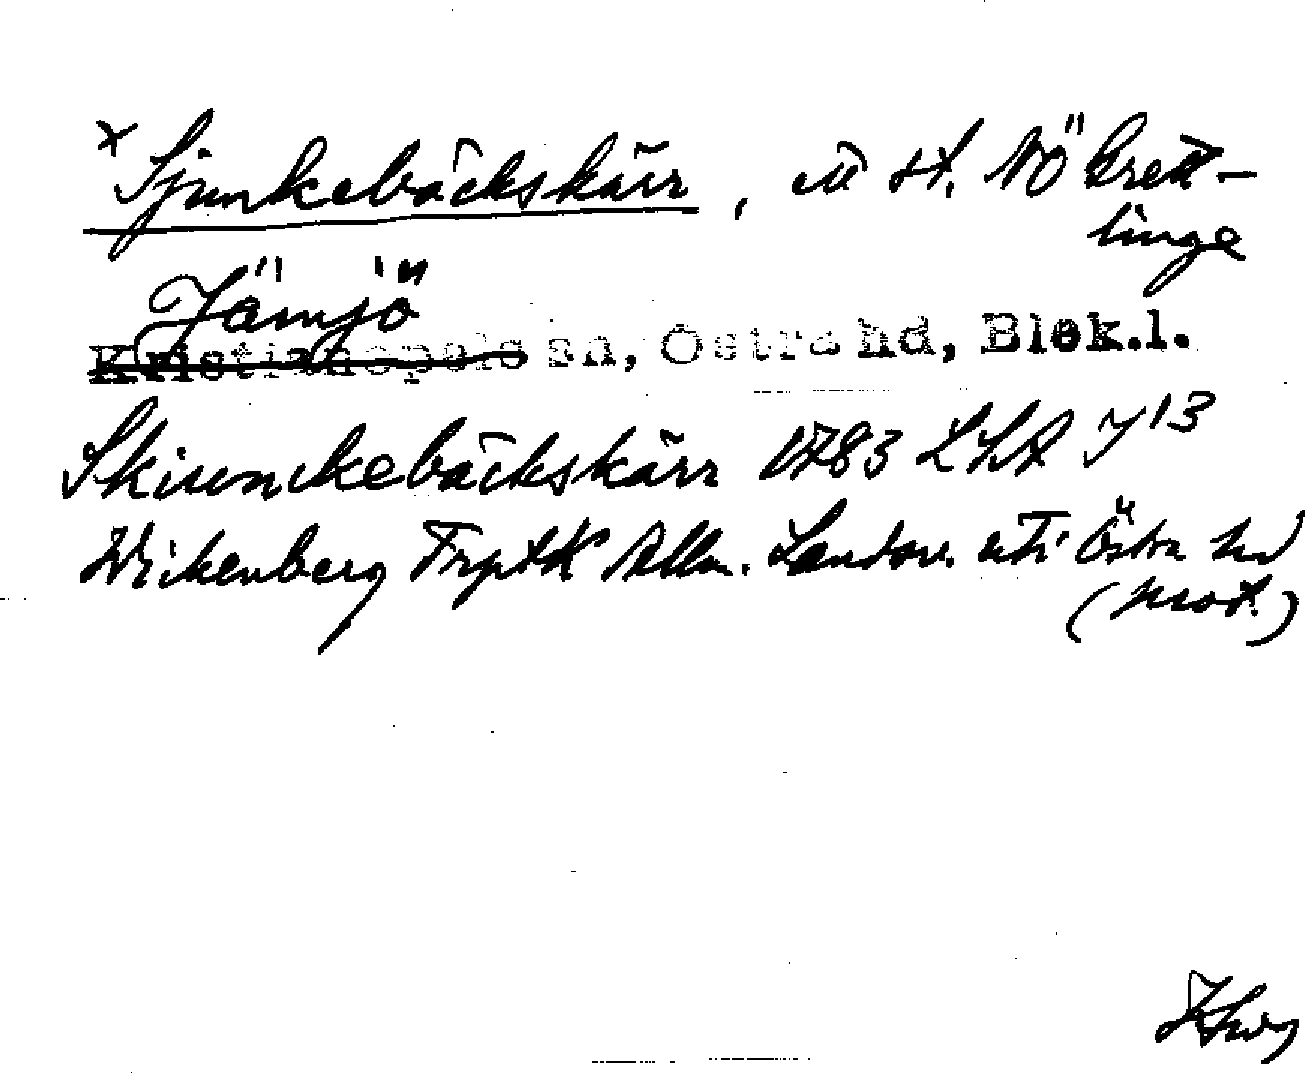 x Sjunkebäckskärr, ett st. NÖ Brett-
linge
Jämjö
Kristianopels sn, Östra hd, Blek.l.
Skiunckebäckskärr 1783 LSA J13
Wickenberg Allm. Landsv. uti Östra hd